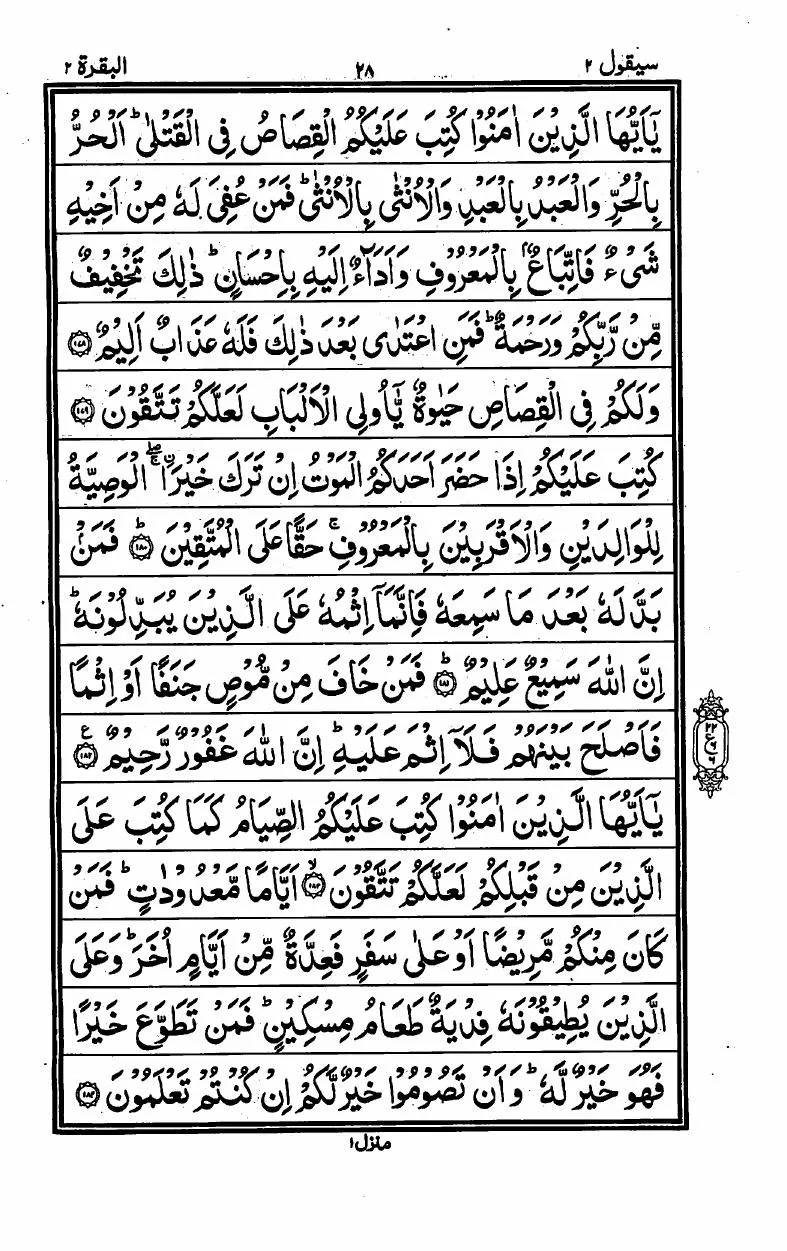 سيقول ٢ ٢٨ البقرة ٢
يٰۤاَيُّهَا الَّذِيْنَ اٰمَنُوْا كُتِبَ عَلَيْكُمُ الْقِصَاصُ فِى الْقَتْلٰى ؕ اَلْحُرُّ
بِالْحُرِّ وَالْعَبْدُ بِالْعَبْدِ وَالْاُنْثٰى بِالْاُنْثٰى ؕ فَمَنْ عُفِىَ لَهٗ مِنْ اَخِيْهِ
شَىْءٌ فَاتِّبَاعٌۢ بِالْمَعْرُوْفِ وَاَدَآءٌ اِلَيْهِ بِاِحْسَانٍ ؕ ذٰلِكَ تَخْفِيْفٌ
مِّنْ رَّبِّكُمْ وَرَحْمَةٌ ؕ فَمَنِ اعْتَدٰى بَعْدَ ذٰلِكَ فَلَهٗ عَذَابٌ اَلِيْمٌ ۝١٧٨
وَلَكُمْ فِى الْقِصَاصِ حَيٰوةٌ يّٰۤاُولِى الْاَلْبَابِ لَعَلَّكُمْ تَتَّقُوْنَ ۝١٧٩
كُتِبَ عَلَيْكُمْ اِذَا حَضَرَ اَحَدَكُمُ الْمَوْتُ اِنْ تَرَكَ خَيْرَا ۖۚ اۨلْوَصِيَّةُ
لِلْوَالِدَيْنِ وَالْاَقْرَبِيْنَ بِالْمَعْرُوْفِ ۚ حَقًّا عَلَى الْمُتَّقِيْنَ ؕ ۝١٨٠ فَمَنْۢ
بَدَّلَهٗ بَعْدَ مَا سَمِعَهٗ فَاِنَّمَاۤ اِثْمُهٗ عَلَى الَّذِيْنَ يُبَدِّلُوْنَهٗ ؕ
اِنَّ اللّٰهَ سَمِيْعٌ عَلِيْمٌ ؕ ۝١٨١ فَمَنْ خَافَ مِنْ مُّوْصٍ جَنَفًا اَوْ اِثْمًا
فَاَصْلَحَ بَيْنَهُمْ فَلَاۤ اِثْمَ عَلَيْهِ ؕ اِنَّ اللّٰهَ غَفُوْرٌ رَّحِيْمٌ ۝١٨٢ ع
٢٢ ع ٦ ٦
يٰۤاَيُّهَا الَّذِيْنَ اٰمَنُوْا كُتِبَ عَلَيْكُمُ الصِّيَامُ كَمَا كُتِبَ عَلَى
الَّذِيْنَ مِنْ قَبْلِكُمْ لَعَلَّكُمْ تَتَّقُوْنَ ۙ ۝١٨٣ اَيَّامًا مَّعْدُوْدٰتٍ ؕ فَمَنْ
كَانَ مِنْكُمْ مَّرِيْضًا اَوْ عَلٰى سَفَرٍ فَعِدَّةٌ مِّنْ اَيَّامٍ اُخَرَ ؕ وَعَلَى
الَّذِيْنَ يُطِيْقُوْنَهٗ فِدْيَةٌ طَعَامُ مِسْكِيْنٍ ؕ فَمَنْ تَطَوَّعَ خَيْرًا
فَهُوَ خَيْرٌ لَّهٗ ؕ وَاَنْ تَصُوْمُوْا خَيْرٌ لَّكُمْ اِنْ كُنْتُمْ تَعْلَمُوْنَ ۝١٨٤
منزل ١